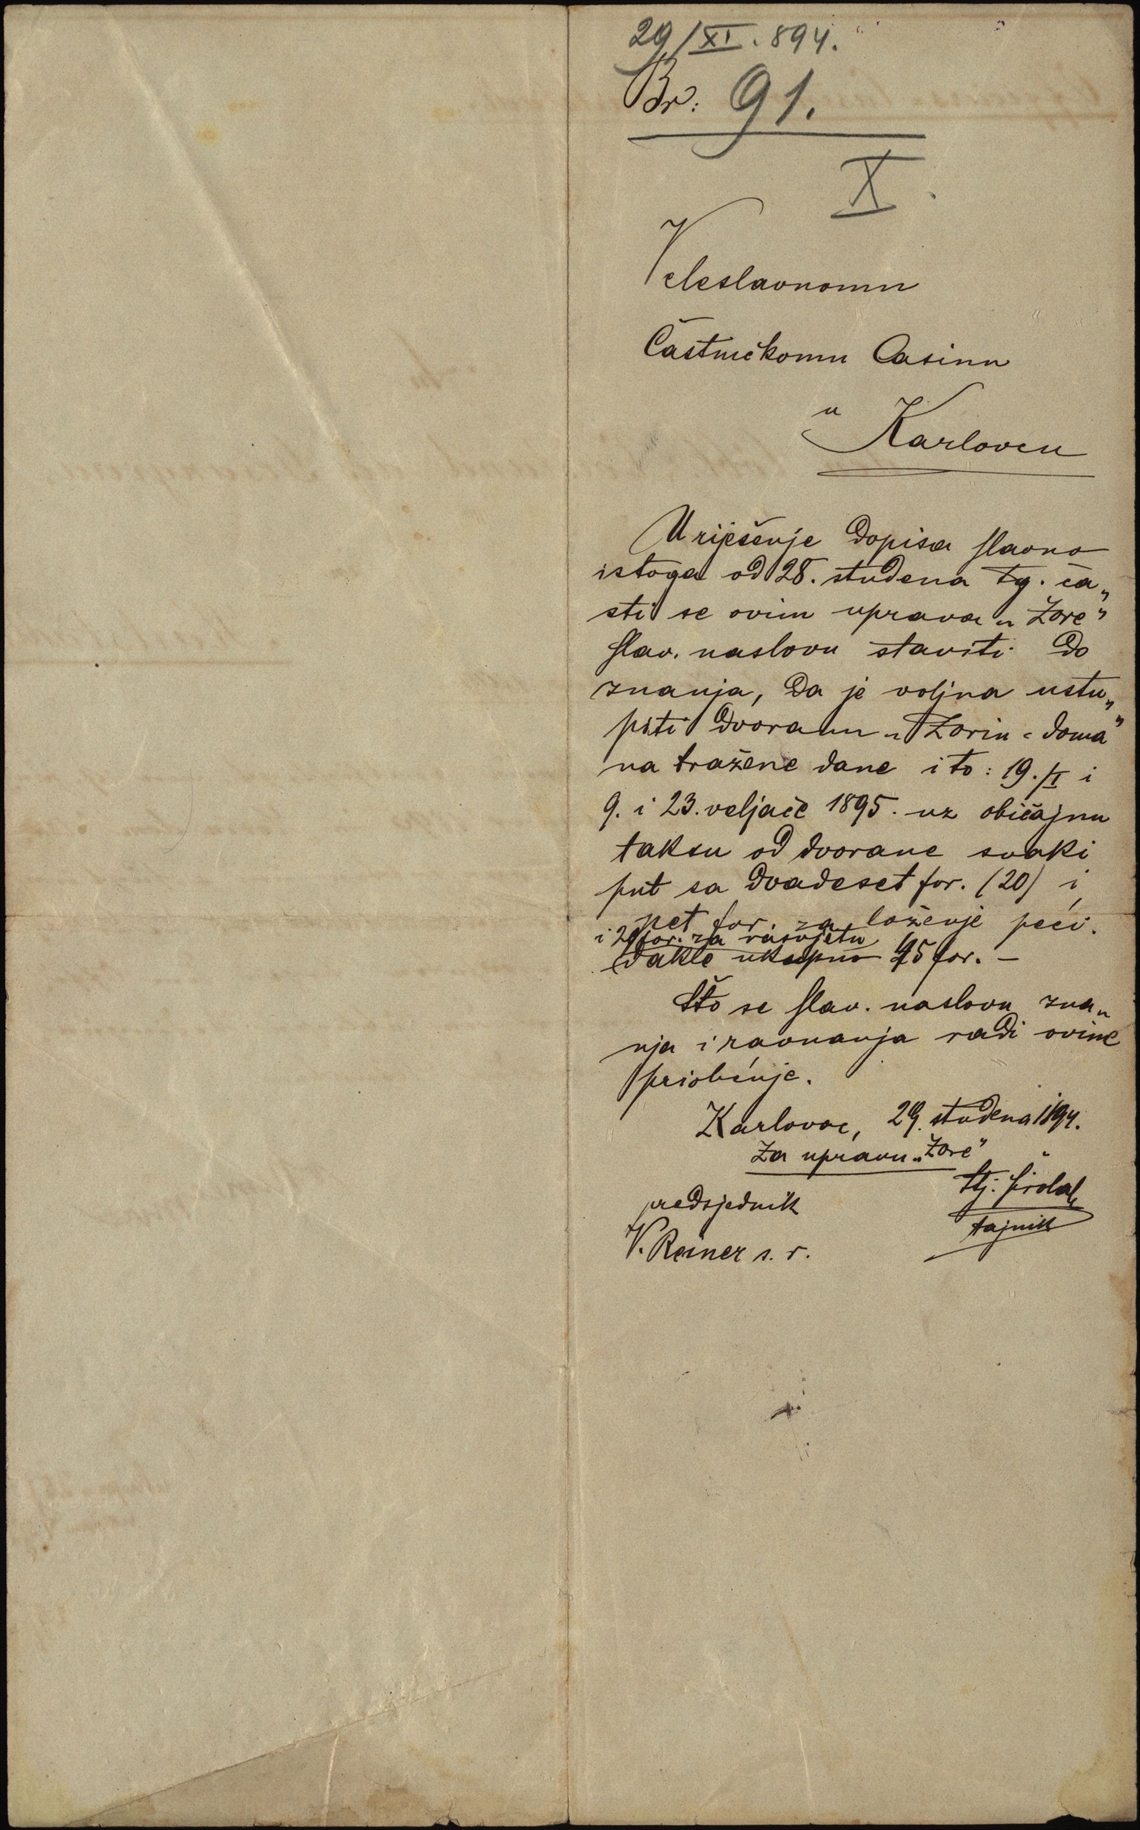 29/XI. 894.
Br: 91.
X.
Veleslavnomu
Častničkomu Casinu
u Karlovcu
U riješenje dopisa slavno
istoga od 28. studena tg. ča„
sti se ovim uprava „Zore"
slav. naslovu staviti do
znanja, da je voljna ustu„
piti dvoranu „Zorin-doma"
na tražene dane i to: 19./I i
9. i 23. veljače 1895. uz običajnu
taksu od dvorane svaki
put sa dvadeset for. (20) i
pet for. za loženje peći.
i 20 for. za rasvjetu
dakle ukupno 45 for. –
Što se slav. naslovu zna„
nja i ravnanja radi ovime
priobćuje.
Karlovac, 29. studena 1894.
Za upravu „Zore"
predsjednik
V. Reiner s. r.
Stj.
tajnik